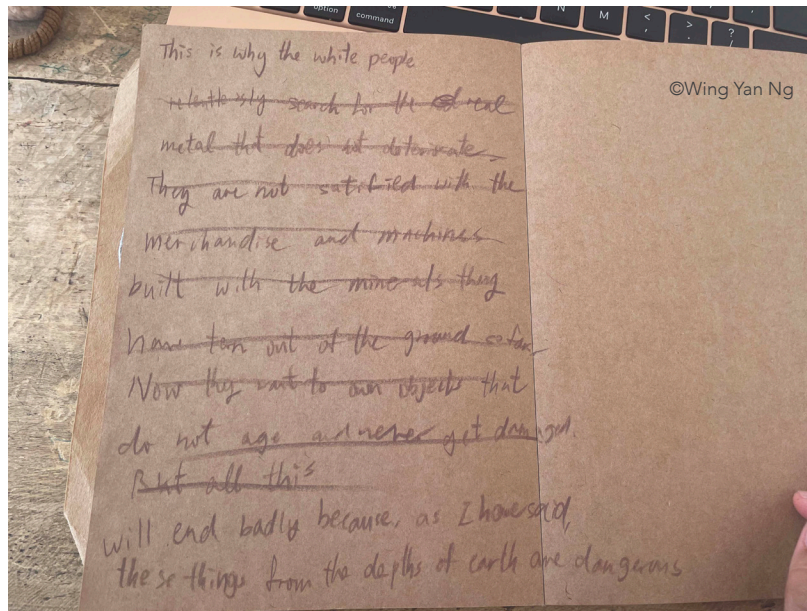 option
command
N
M
<
,
>
.
?
/
©Wing Yan Ng
This is why the white people
relentlessly search for the real
metal that does not deteriorate.
They are not satified with the
merchandise and machines
built with the minerals they
have torn out of the ground so far.
Now they want to own objects that
do not age and never get damaged.
But all this
will end badly because, as I have said,
these things from the depths of earth are dangerous